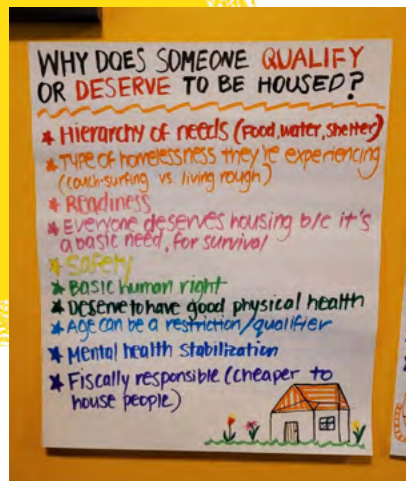 WHY DOES SOMEONE QUALIFY
OR DESERVE TO BE HOUSED?
* Hierarchy of needs (Food, water, shelter)
* TYPE OF homelessness they're experiencing
(couch-surfing vs. living rough)
* Readiness
* Everyone deserves housing b/c it's
a basic need, for survival
* Safety
* Basic human right
* Deserve to have good physical health
* Age can be a restriction/qualifier
* Mental health stabilization
* Fiscally responsible (cheaper to
house people)